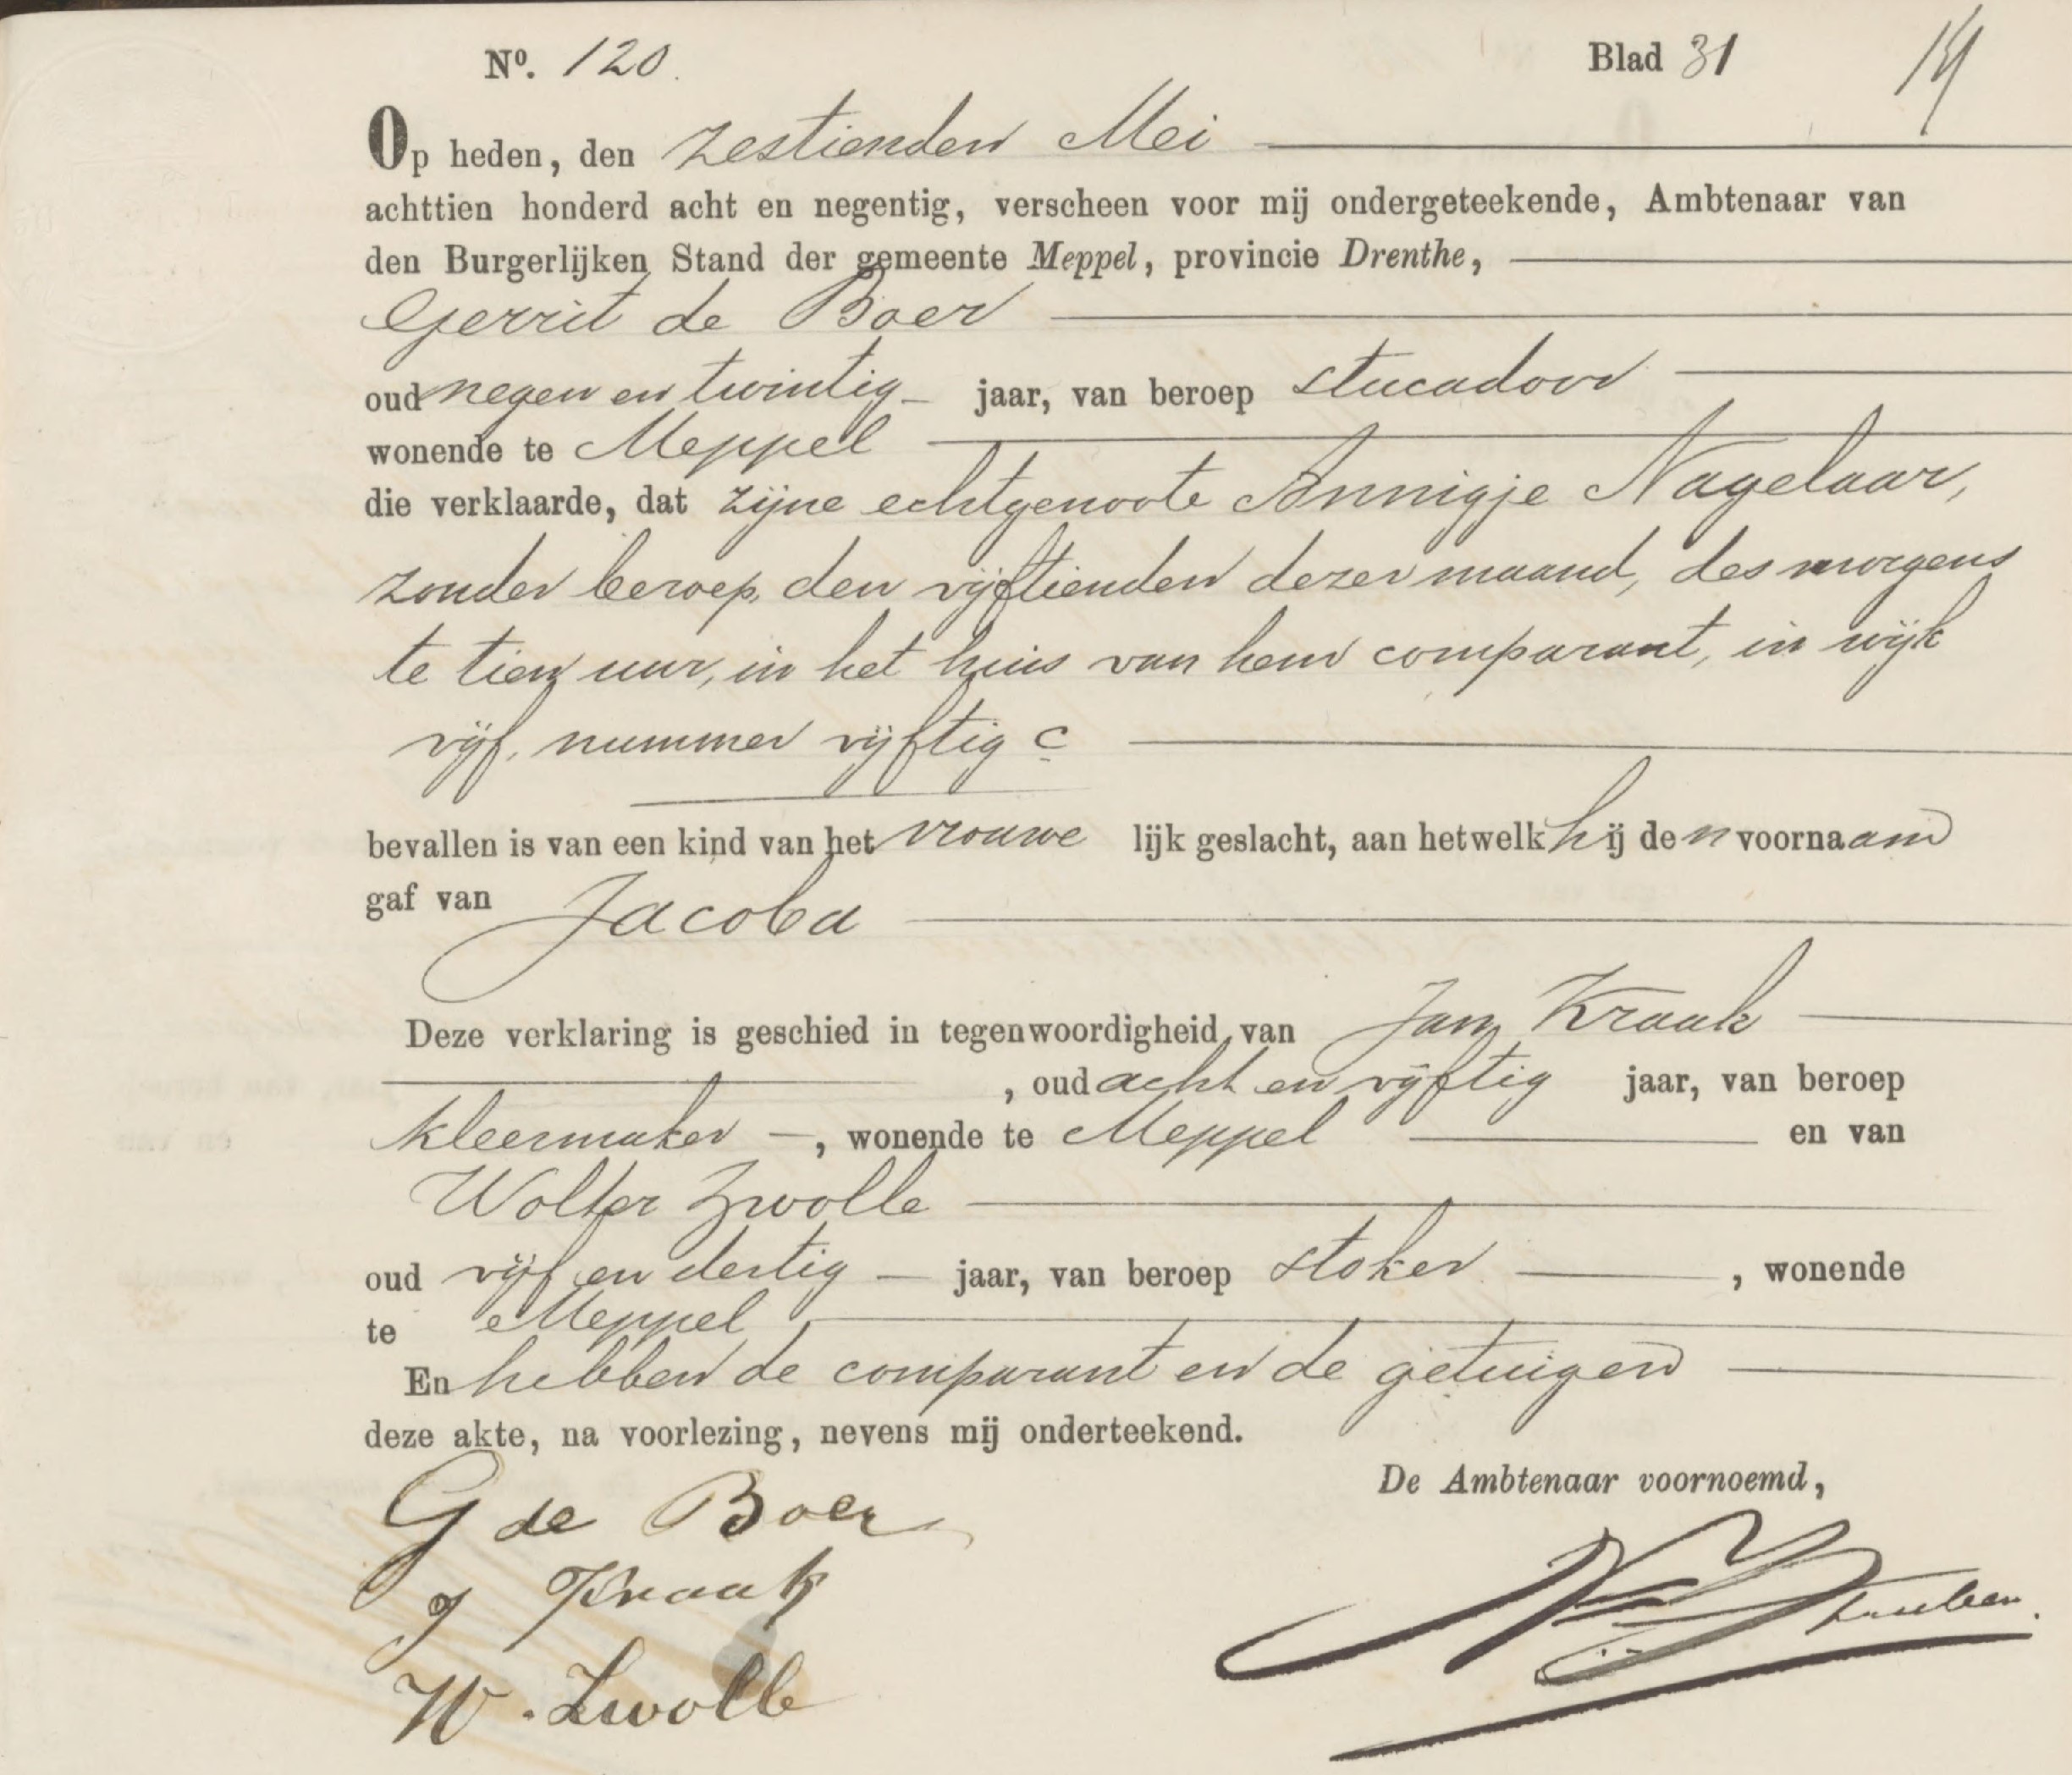 Nº. 120. Blad 31 14
Op heden, den zestienden Mei
achttien honderd acht en negentig, verscheen voor mij ondergeteekende, Ambtenaar van
den Burgerlijken Stand der gemeente Meppel, provincie Drenthe,
Gerrit de Boer
oud negen en twintig jaar, van beroep stucadoor
wonende te Meppel
die verklaarde, dat zijne echtgenoote Annigje Nagelaar,
zonder beroep, den vijftienden dezer maand, des morgens
te tien uur, in het huis van hem comparant, in wijk
vijf, nummer vijftig c
bevallen is van een kind van het vrouwe lijk geslacht, aan hetwelk hij den voornaam
gaf van Jacoba
Deze verklaring is geschied in tegenwoordigheid van Jan Kraak
, oud acht en vijftig jaar, van beroep
kleermaker —, wonende te Meppel en van
Wolter Zwolle
oud vijf en dertig — jaar, van beroep stoker , wonende
te Meppel
En hebben de comparant en de getuigen
deze akte, na voorlezing, nevens mij onderteekend.
De Ambtenaar voornoemd,
G de Boer
J Kraak
W. Zwolle